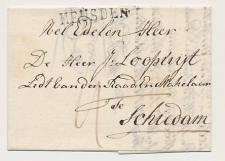 HEUSDEN
Wel Edelen Heer
De Heer J. Loopuijt
Lidt van den Raad en Makelaar
te
Schiedam